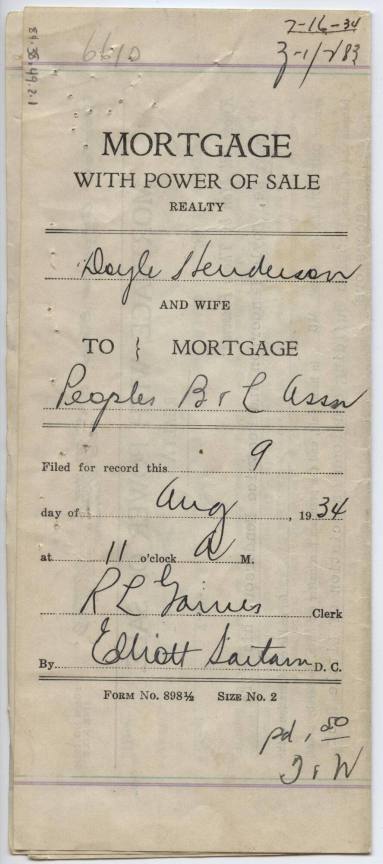 7-16-34
6610
84.38.49.2.1
MORTGAGE
WITH POWER OF SALE
REALTY
Doyle Henderson
AND WIFE
TO { MORTGAGE
Peoples B & L Assn
Filed for record this 9
day of Aug, 1934
at 11 o'clock A M.
R L Gaines Clerk
By Elliott Sartain D. C.
FORM NO. 898½ SIZE NO. 2
pd. .50